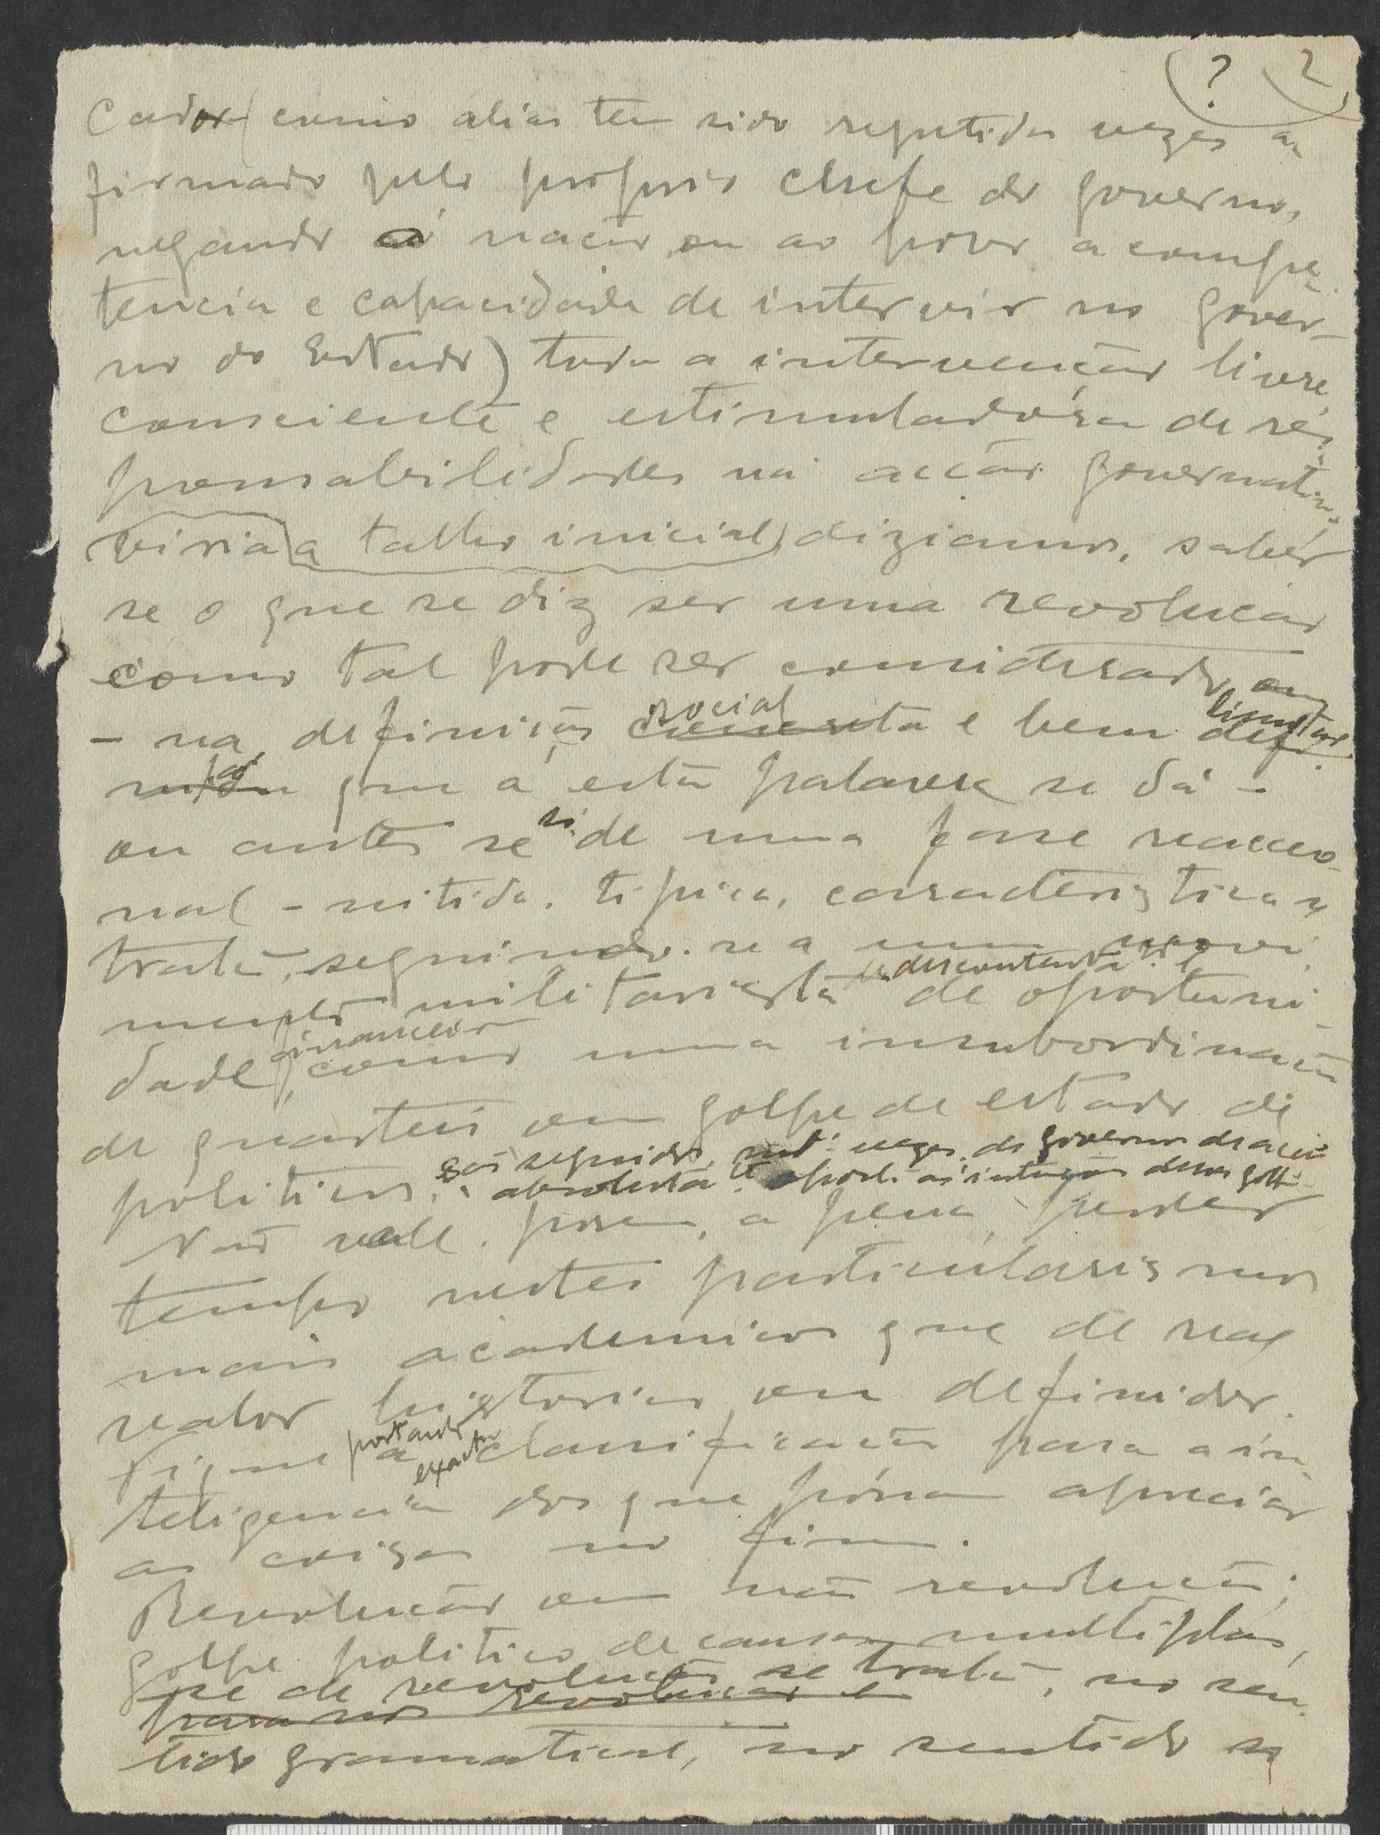 ? 2
cador (como aliás tem sido repetidas vezes a-
firmado pelo proprio chefe do governo,
negando á nação ou ao povo a compe-
tencia e capacidade de intervir no gover-
no do Estado) toda a intervenção livre,
consciente e estimuladora de res-
ponsabilidades na acção governativa,
viria a talho inicial, diziamos, saber
se o que se diz ser uma revolução
como tal pode ser considerado
social limitar
– na definição concreta e bem def
que a esta palavra se dá –
ou antes se de uma fase reaccio-
nal – nitida, tipica, caracteristica se
trata, seguindo-se a um movi-
descontenta
mento militarista de oportuni-
financeiro
dade, como uma insubordinação
de quarteis ou golpe de estado de
politicos, seguido vezes de governos de acção
absoluta oposta ás intenções desses golp
Não vale, porem, a pena perder
tempo nestes particularismos
mais academicos que de real
valor historico ou definidor.
portando
Fique a classificação para a in-
exacta
teligencia dos que possam apreciar
as coisas no fim.
Revolução ou não revolução;
golpe politico de causas multiplas,
se de revolução se trata, no sen-
para nos revolução é
tido gramatical, no sentido so